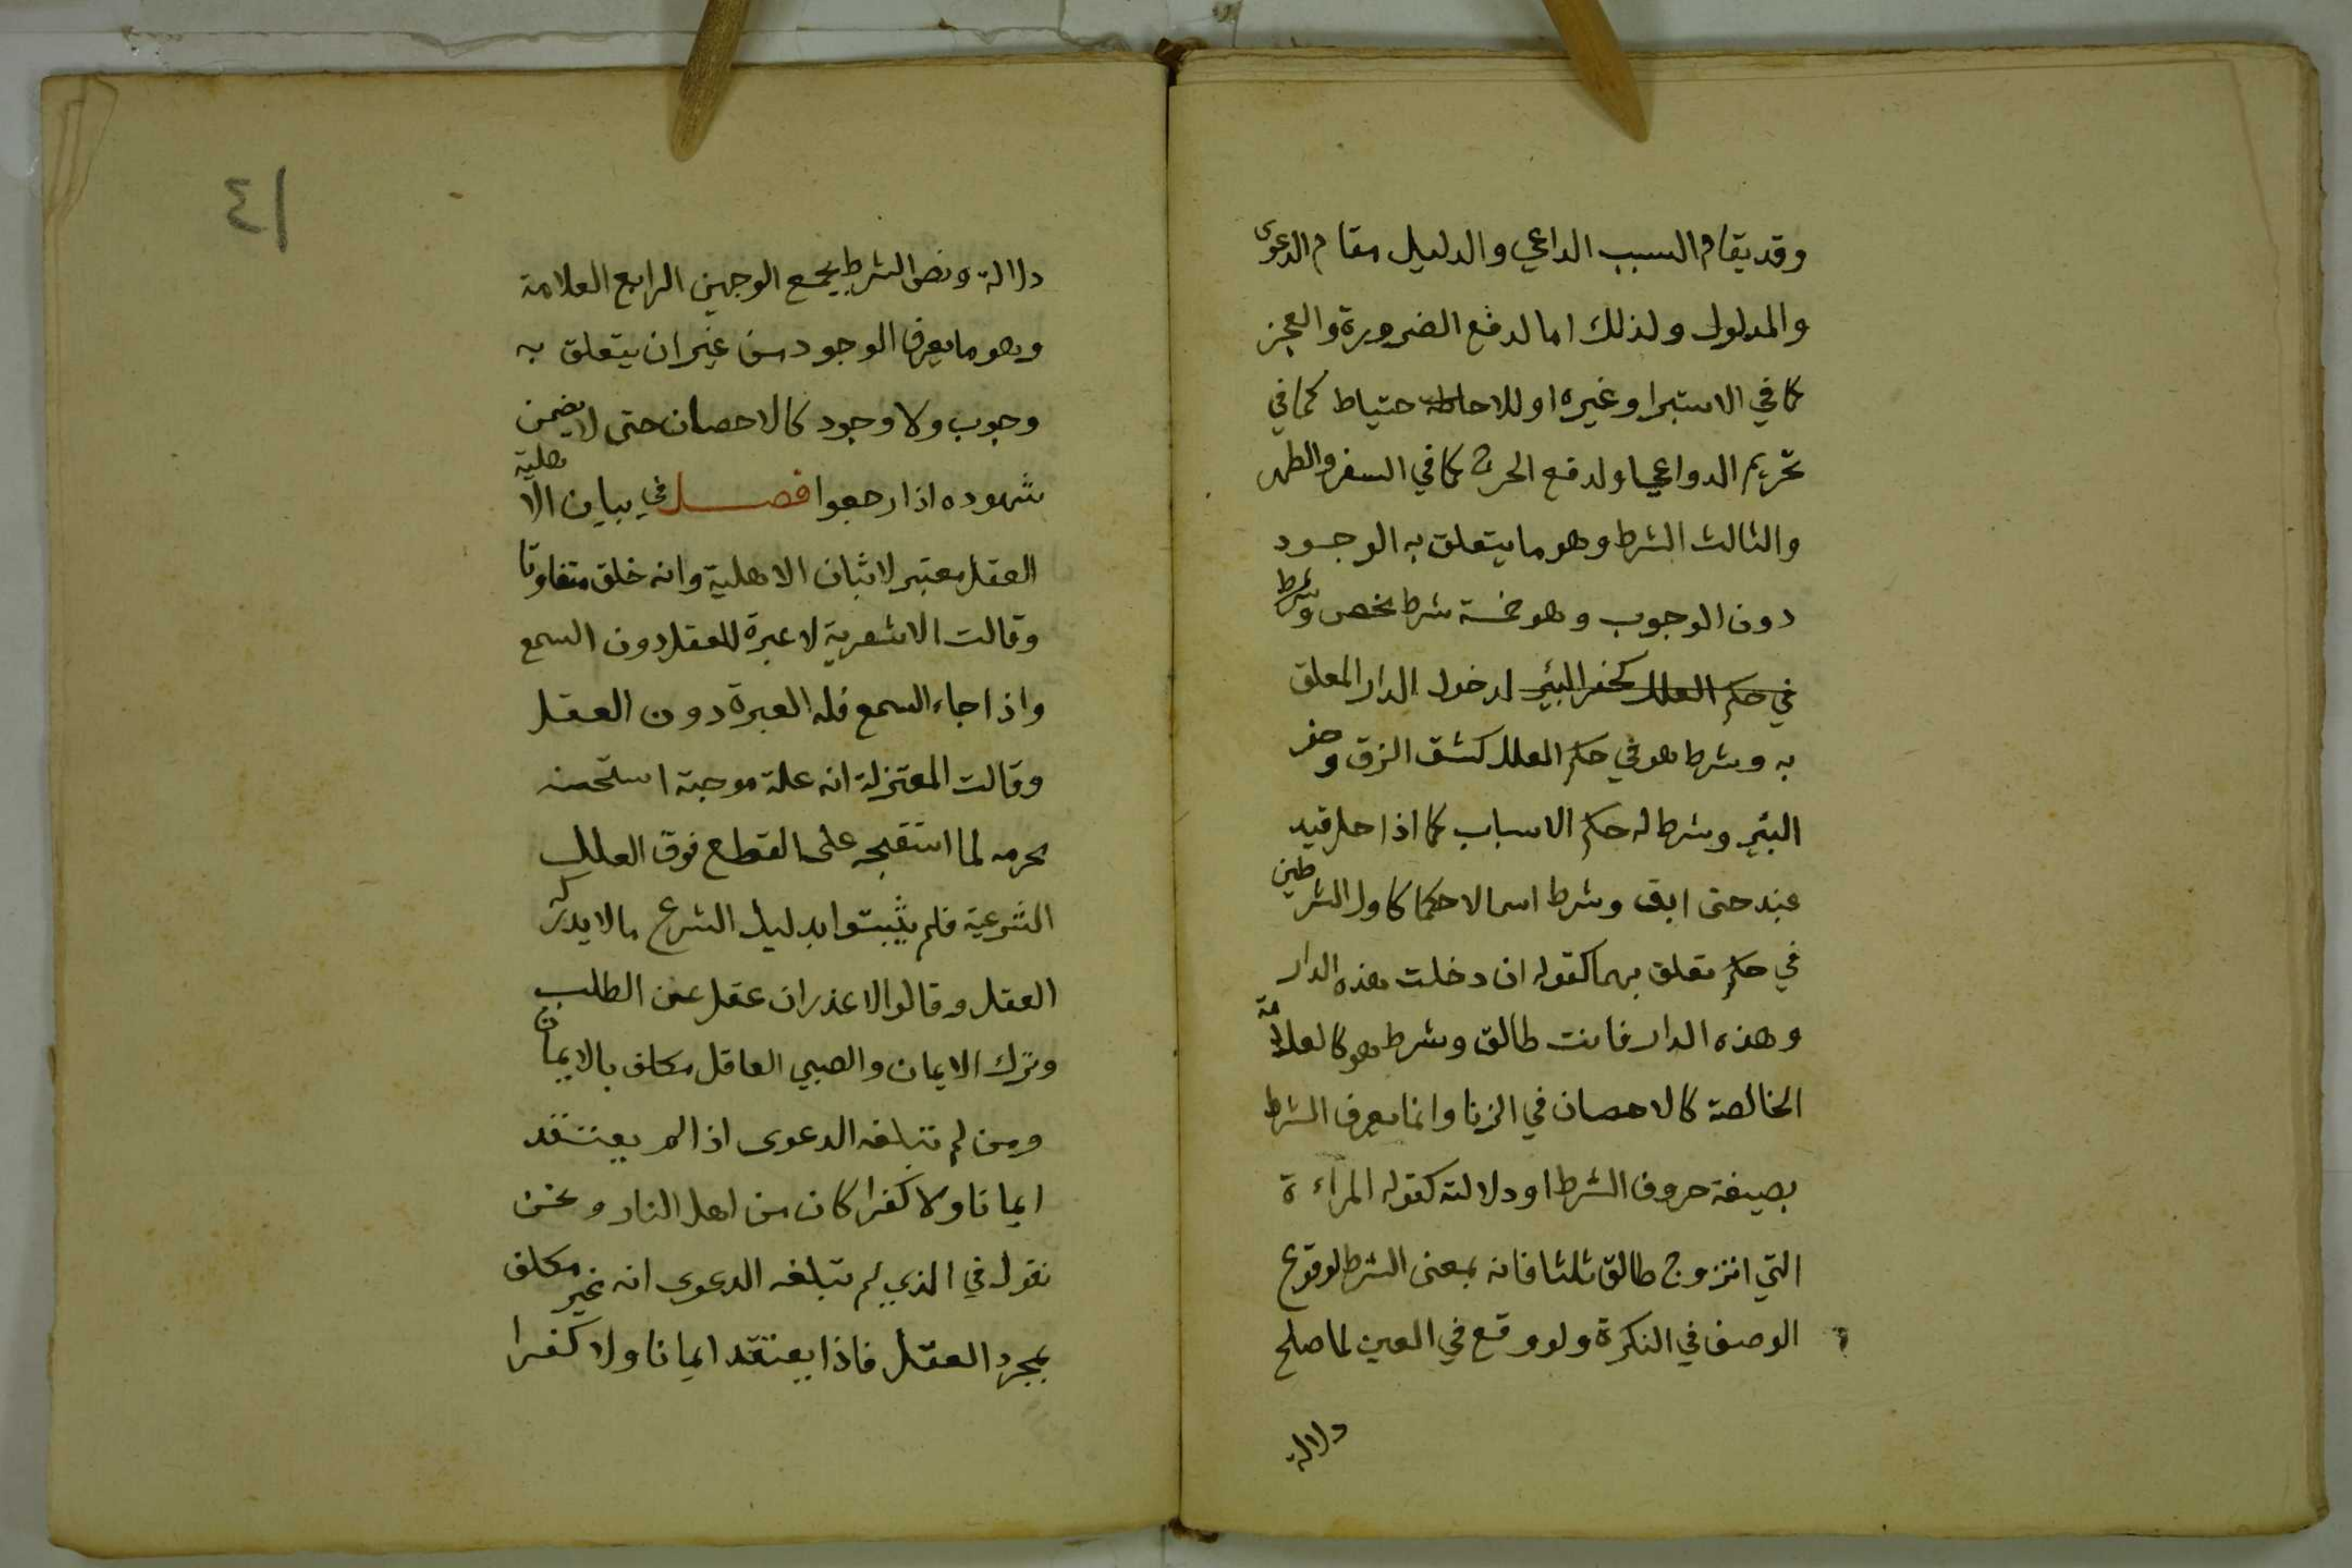 وقد يقام السبب الداعي والدليل مقام الدعوى
والمدلول ولذلك اما لدفع الضرورة والعجز
كما في الاستبرا وغيره او للاحاطه حتياط كما في
تحريم الدواعي او لدفع الحرج كما في السفر والطهر
والثالث الشرط وهو ما يتعلق به الوجود
دون الوجوب وهو خمسة شرط محض وشرط
في حكم العلل كحفر البئر لدخول الدار المعلق
به وشرط هو في حكم العلل كشق الزق وحفر
البئر وشرط له حكم الاسباب كما اذا حل قيد
عبد حتى ابق وشرط اسما لا حكما كاول الشرطين
في حكم تعلق بهما كقوله ان دخلت هذه الدار
وهذه الدار فانت طالق وشرط هو كالعلامة
الخالصة كالاحصان في الزنا وانما يعرف الشرط
بصيغة حروف الشرط او دلالته كقوله المراءة
التي اتزوج طالق ثلثا فانه بمعنى الشرط لوقوع
الوصف في النكرة ولو وقع في العين لما صلح
دلالة
٤١
دلالة ونص الشرط يجمع الوجهين الرابع العلامة
وهو ما يعرف الوجود من غير ان يتعلق به
وجوب ولا وجود كالاحصان حتى لا يضمن
شهوده اذا رجعوا فصل في بيان الاهلية
العقل معتبر لاثبات الاهلية وانه خلق متفاوتا
وقالت الاشعرية لا عبرة للعقل دون السمع
واذا جاء السمع فله العبرة دون العقل
وقالت المعتزلة انه علة موجبة استحسنه
محرمه لما استقبحه على القطع فوق العلل
الشرعية فلم يثبتوا بدليل الشرع ما لا يدركه
العقل وقالوا لا عذر ان عقل عن الطلب
وترك الايمان والصبي العاقل مكلف بالايمان
ومن لم تبلغه الدعوى اذا لم يعتقد
ايمانا ولا كفرا كان من اهل النار ونحن
نقول في الذي لم تبلغه الدعوى انه غير مكلف
بمجرد العقل فاذا يعتقد ايمانا ولا كفرا